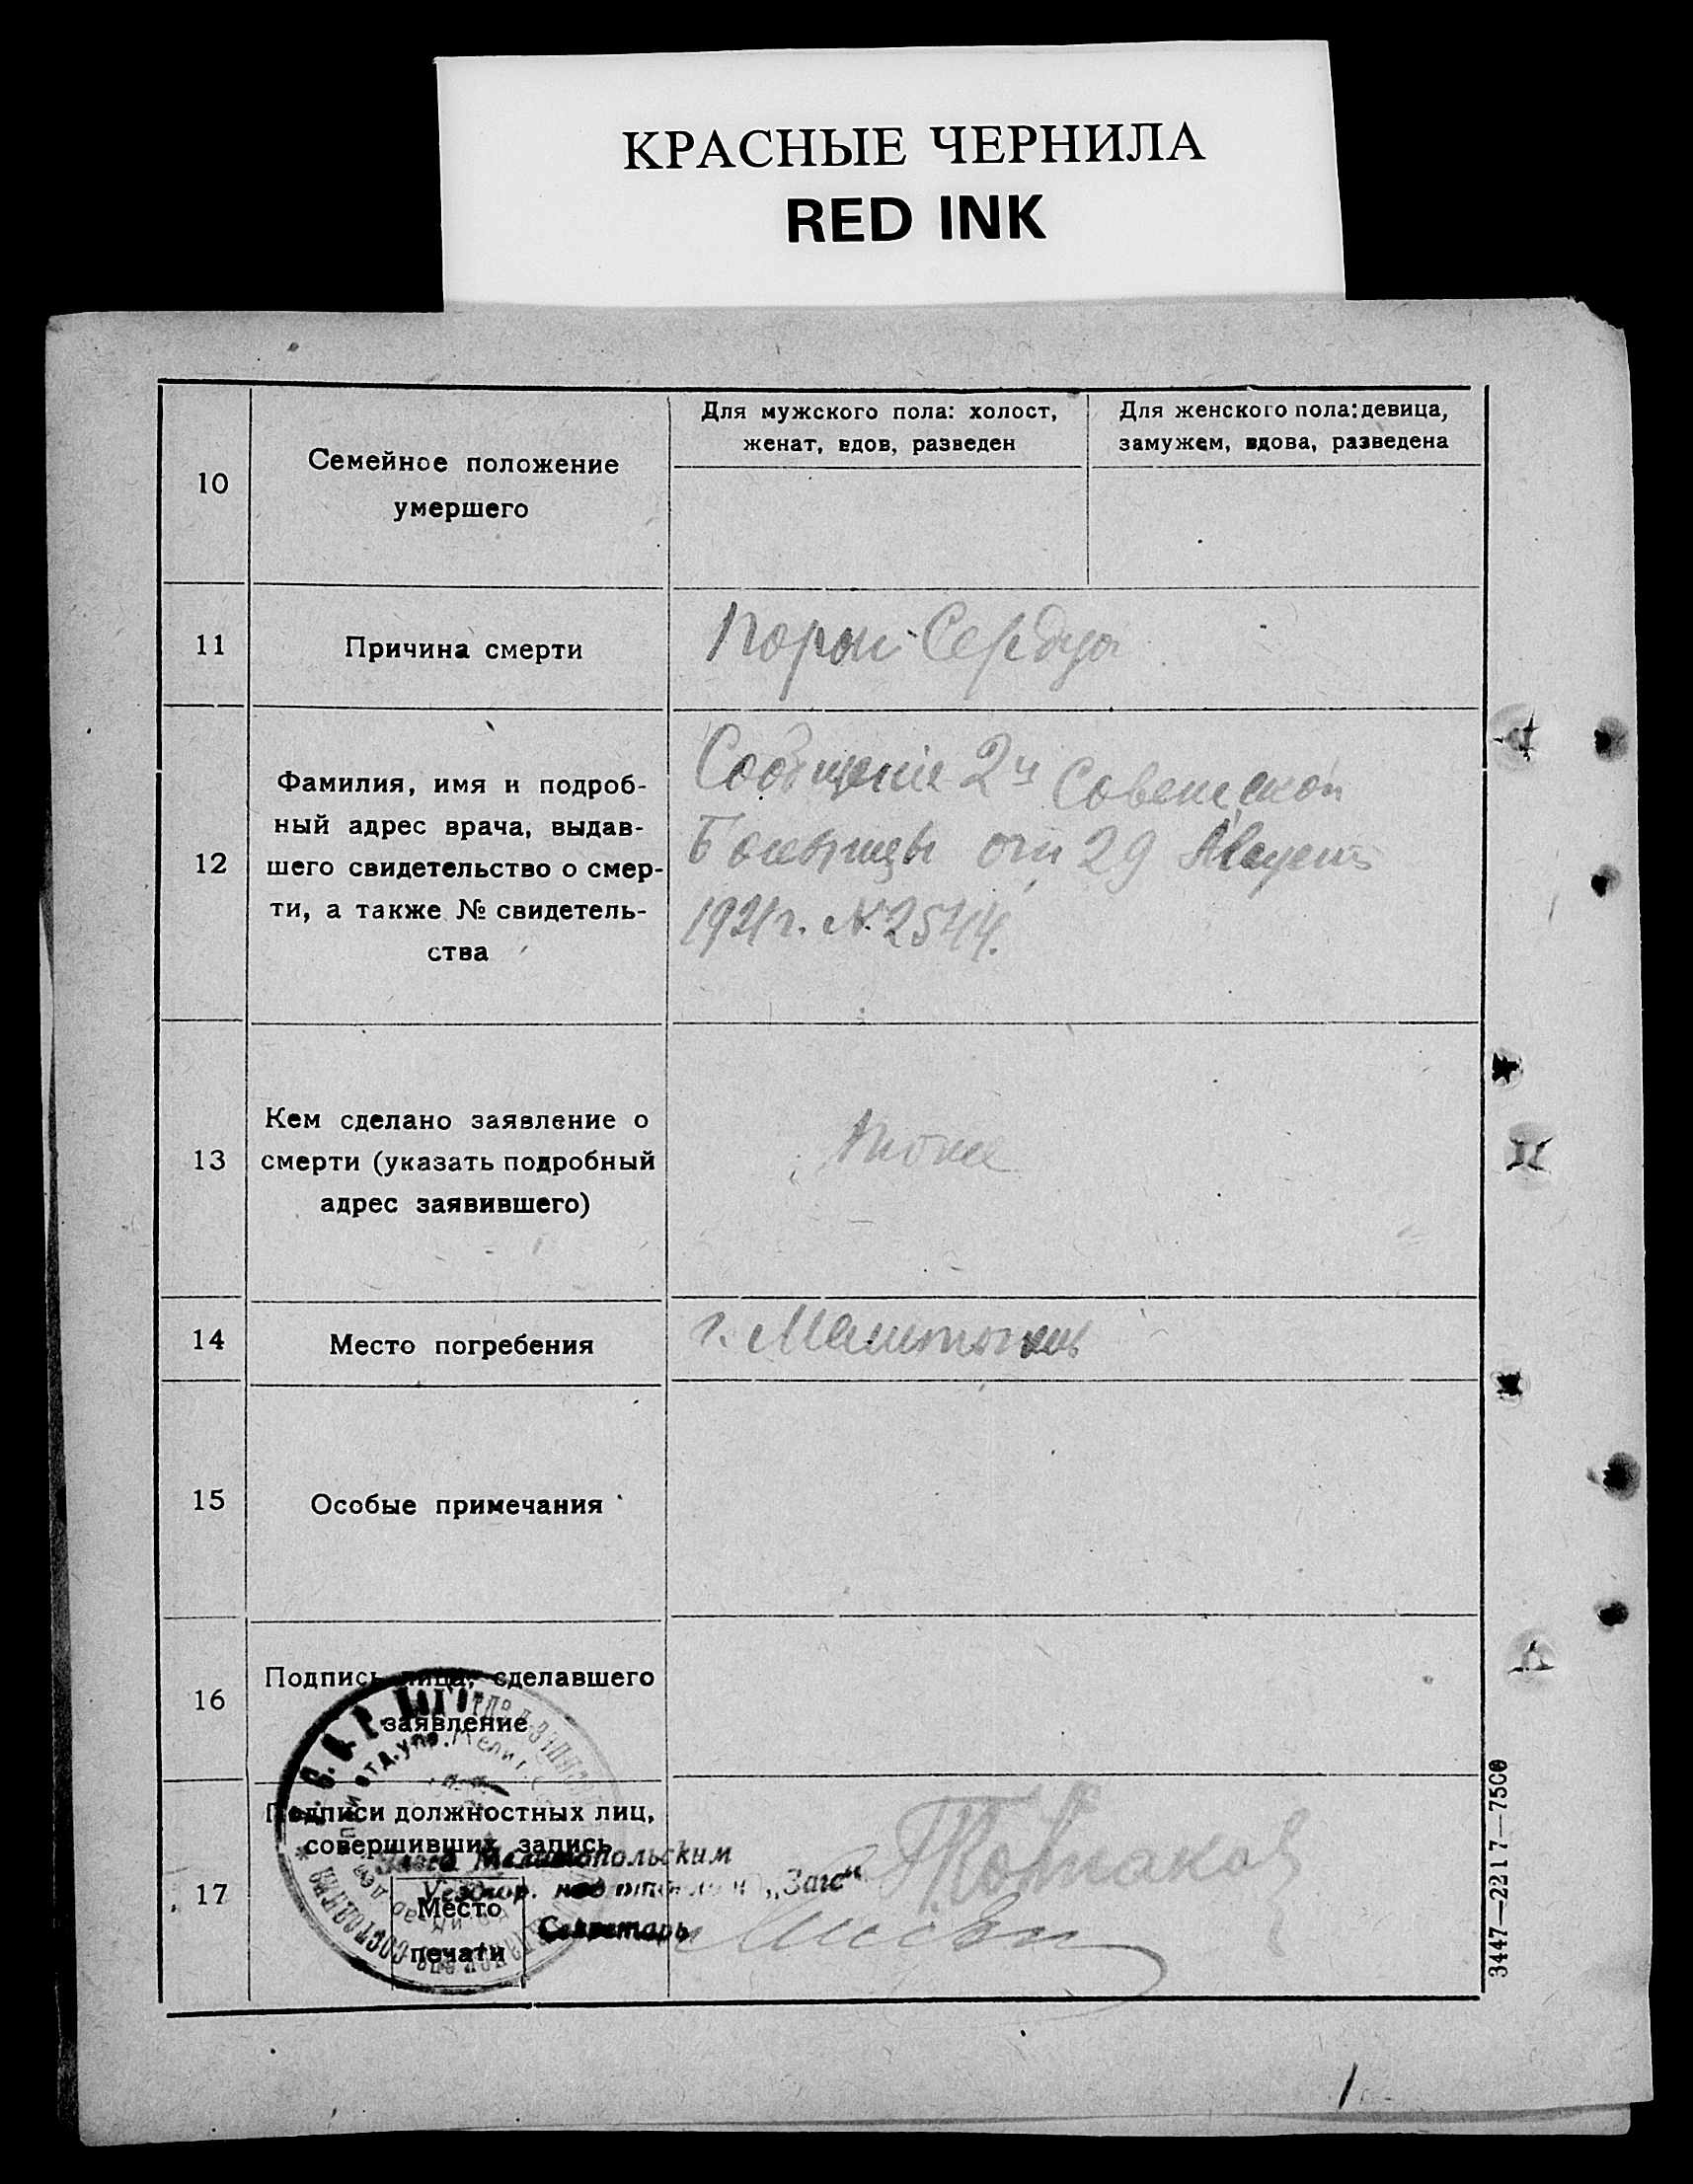 КРАСНЫЕ ЧЕРНИЛА
RED INK
10
Семейное положение
умершего
Для мужского пола: холост,
женат, вдов, разведен
Для женского пола: девица,
замужем, вдова, разведена
11
Причина смерти
Порок Сердца
12
Фамилия, имя и подроб-
ный адрес врача, выдав-
шего свидетельство о смер-
ти, а также № свидетель-
ства
Сообщение 2й Советской
Больницы от 29 Августа
1921 г. № 2544.
13
Кем сделано заявление о
смерти (указать подробный
адрес заявившего)
тоже
14
Место погребения
г. Мелитополь
15
Особые примечания
16
Подпись лица, сделавшего
заявление
17
Подписи должностных лиц,
совершивших запись
Мелитопольским
"Загс"
Место
Секретарь
печати
3447—2217—7500
1